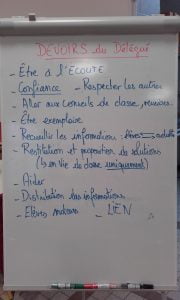 DEVOIRS du Délégué
- Être à l'ÉCOUTE
- Confiance - Respecter les autres
- Aller aux conseils de classe, réunions
- Être exemplaire
- Recueillir les informations : élèves adultes
- Restitution et proposition de solutions
(en vie de classe uniquement)
- Aider
- Distribution des informations
- Elèves moteurs - LIEN